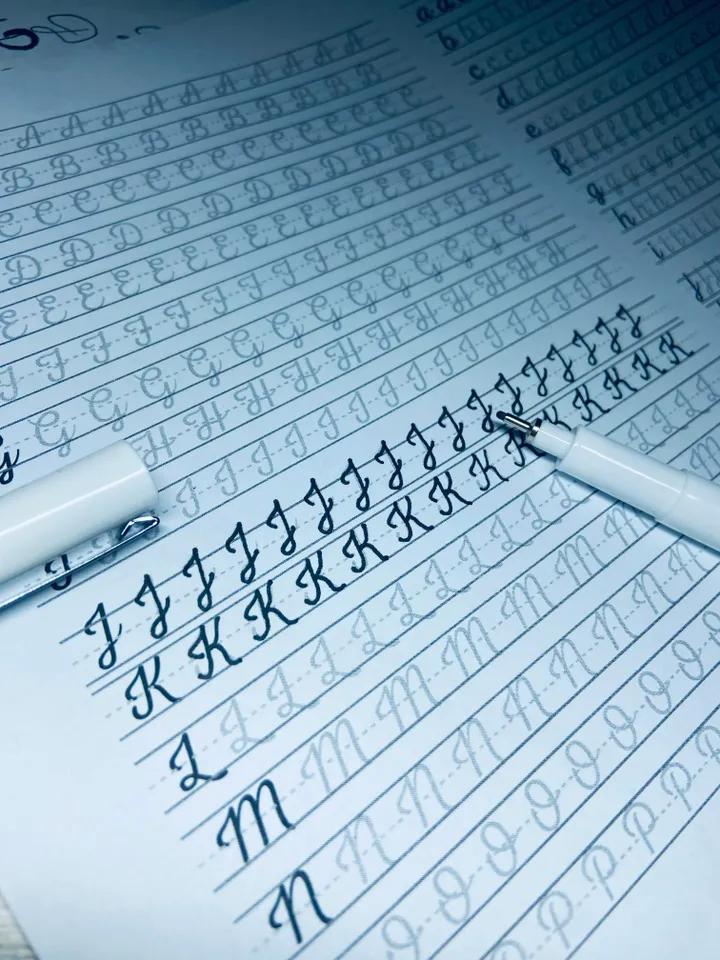 A A A A A A A A A A
B B B B B B B B B B
C C C C C C C C C C C C
D D D D D D D D D D D
E E E E E E E E E E E E E E
F F F F F F F F F F F F F F
G G G G G G G G G G G G G
H H H H H H H H H H H
I I I I I I I I I I I I I I I I
J J J J J J J J J J J J J J J J J
K K K K K K K K K K K K K K
L L L L L L L L L L L L L L
M M M M M M M M
N N N N N N N N N
O O O O O O O O O
P P P P P P
a a a a a
b b b b b b b
c c c c c c c c c c c
d d d d d d d d d d
e e e e e e e e e e
f f f f f f f f f
g g g g g g g g
h h h h h h h
i i i i i i